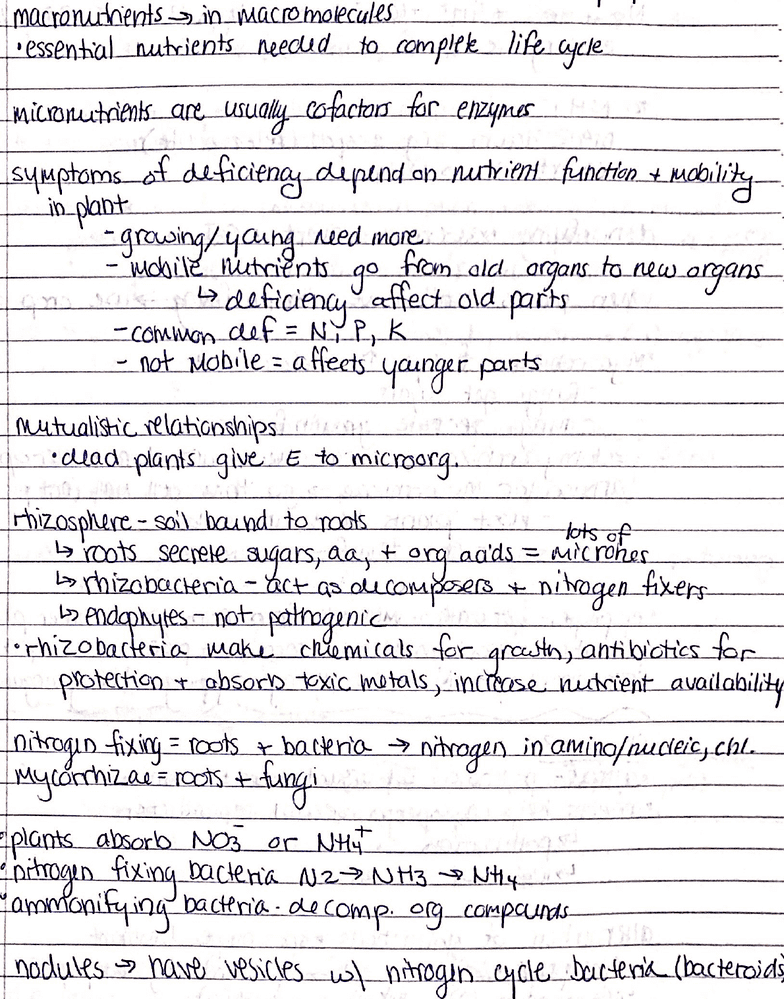 macronutrients → in macromolecules
•essential nutrients needed to complete life cycle
micronutrients are usually cofactors for enzymes
symptoms of deficiency depend on nutrient function + mobility
in plant
- growing/young need more
- mobile nutrients go from old organs to new organs
↳ deficiency affect old parts
- common def = N, P, K
- not mobile = affects younger parts
mutualistic relationships
•dead plants give E to microorg.
rhizosphere - soil bound to roots
↳ roots secrete sugars, aa, + org acids = lots of microbes
↳ rhizobacteria - act as decomposers + nitrogen fixers
↳ endophytes - not pathogenic
•rhizobacteria make chemicals for growth, antibiotics for
protection + absorb toxic metals, increase nutrient availability
nitrogen fixing = roots + bacteria → nitrogen in amino/nucleic, chl.
mycorrhizae = roots + fungi
•plants absorb NO3⁻ or NH4⁺
•nitrogen fixing bacteria N2 → NH3 → NH4
•ammonifying bacteria - decomp. org compounds
nodules → have vesicles w/ nitrogen cycle bacteria (bacteroids)